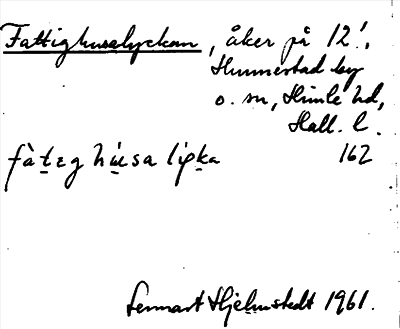 Fattighuselyckan, åker på 12!,
Hunnestad by
o. sn, Himle hd,
Hall. l.
162
Lennart Hjelmstedt 1961.